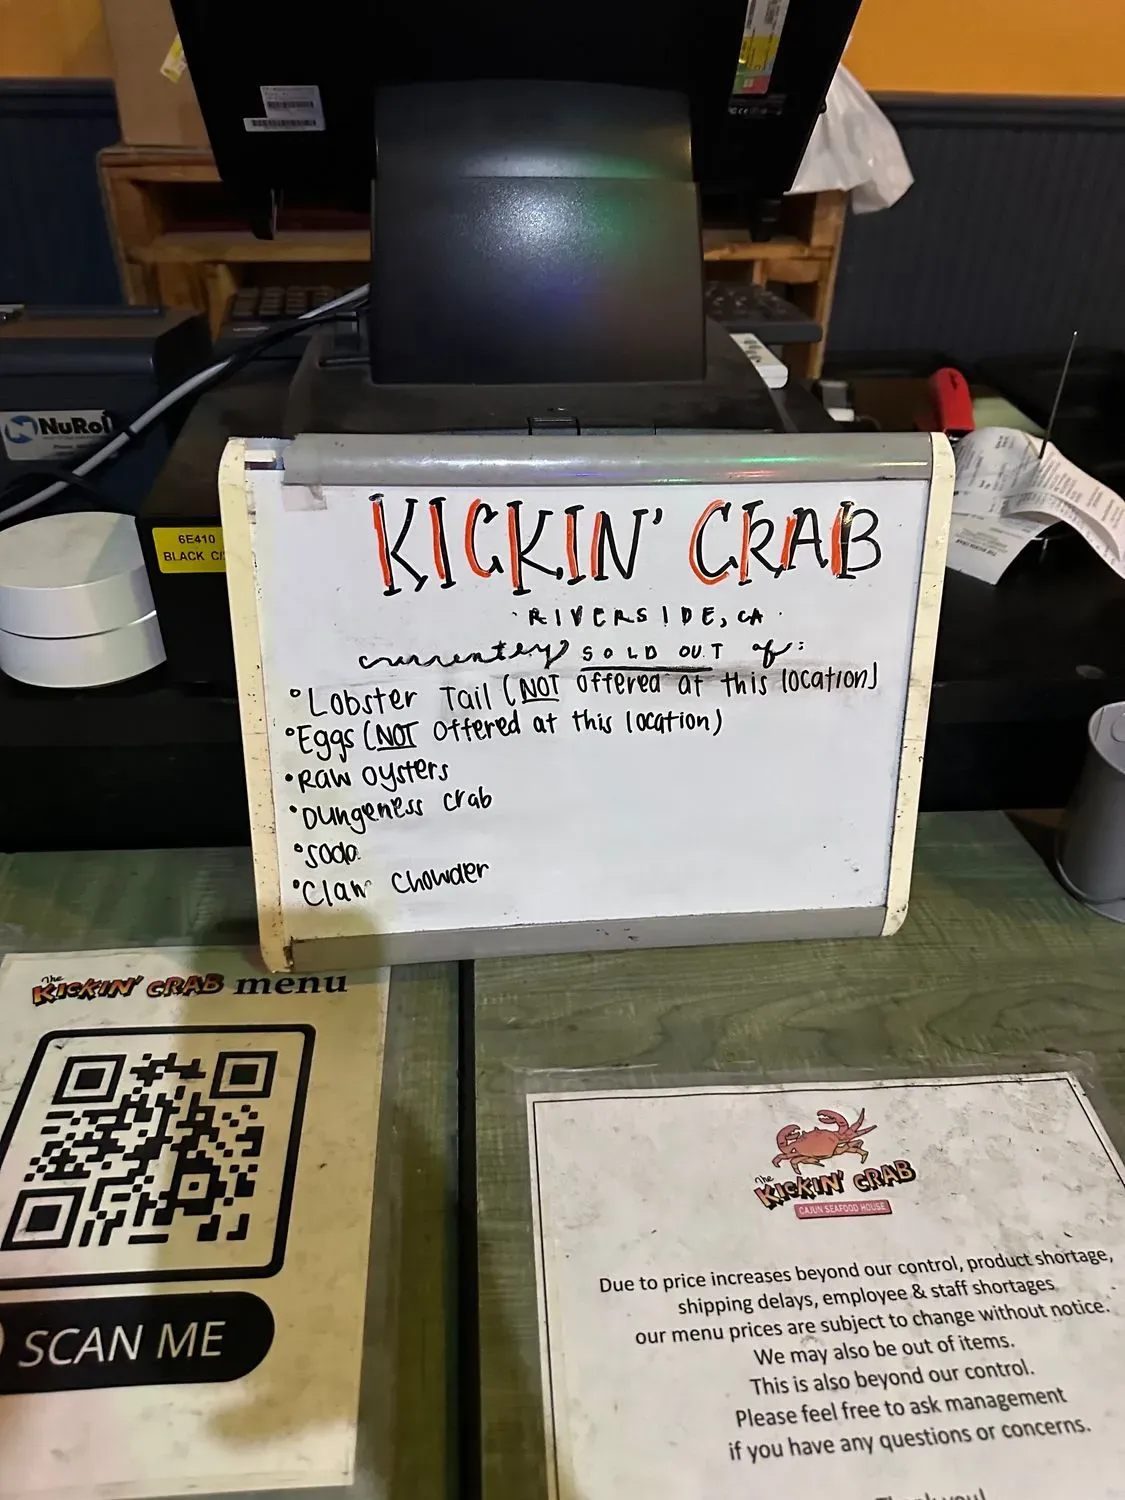 NuRol
6E410
BLACK
KICKIN' CRAB
· RIVERSIDE, CA ·
currently SOLD OUT of:
• Lobster Tail (NOT offered at this location)
• Eggs (NOT offered at this location)
• Raw oysters
• Dungeness crab
• Soda
• Clam Chowder
The KICKIN' CRAB menu
SCAN ME
The
KICKIN' CRAB
CAJUN SEAFOOD HOUSE
Due to price increases beyond our control, product shortage,
shipping delays, employee & staff shortages
our menu prices are subject to change without notice.
We may also be out of items.
This is also beyond our control.
Please feel free to ask management
if you have any questions or concerns.
Thank you!